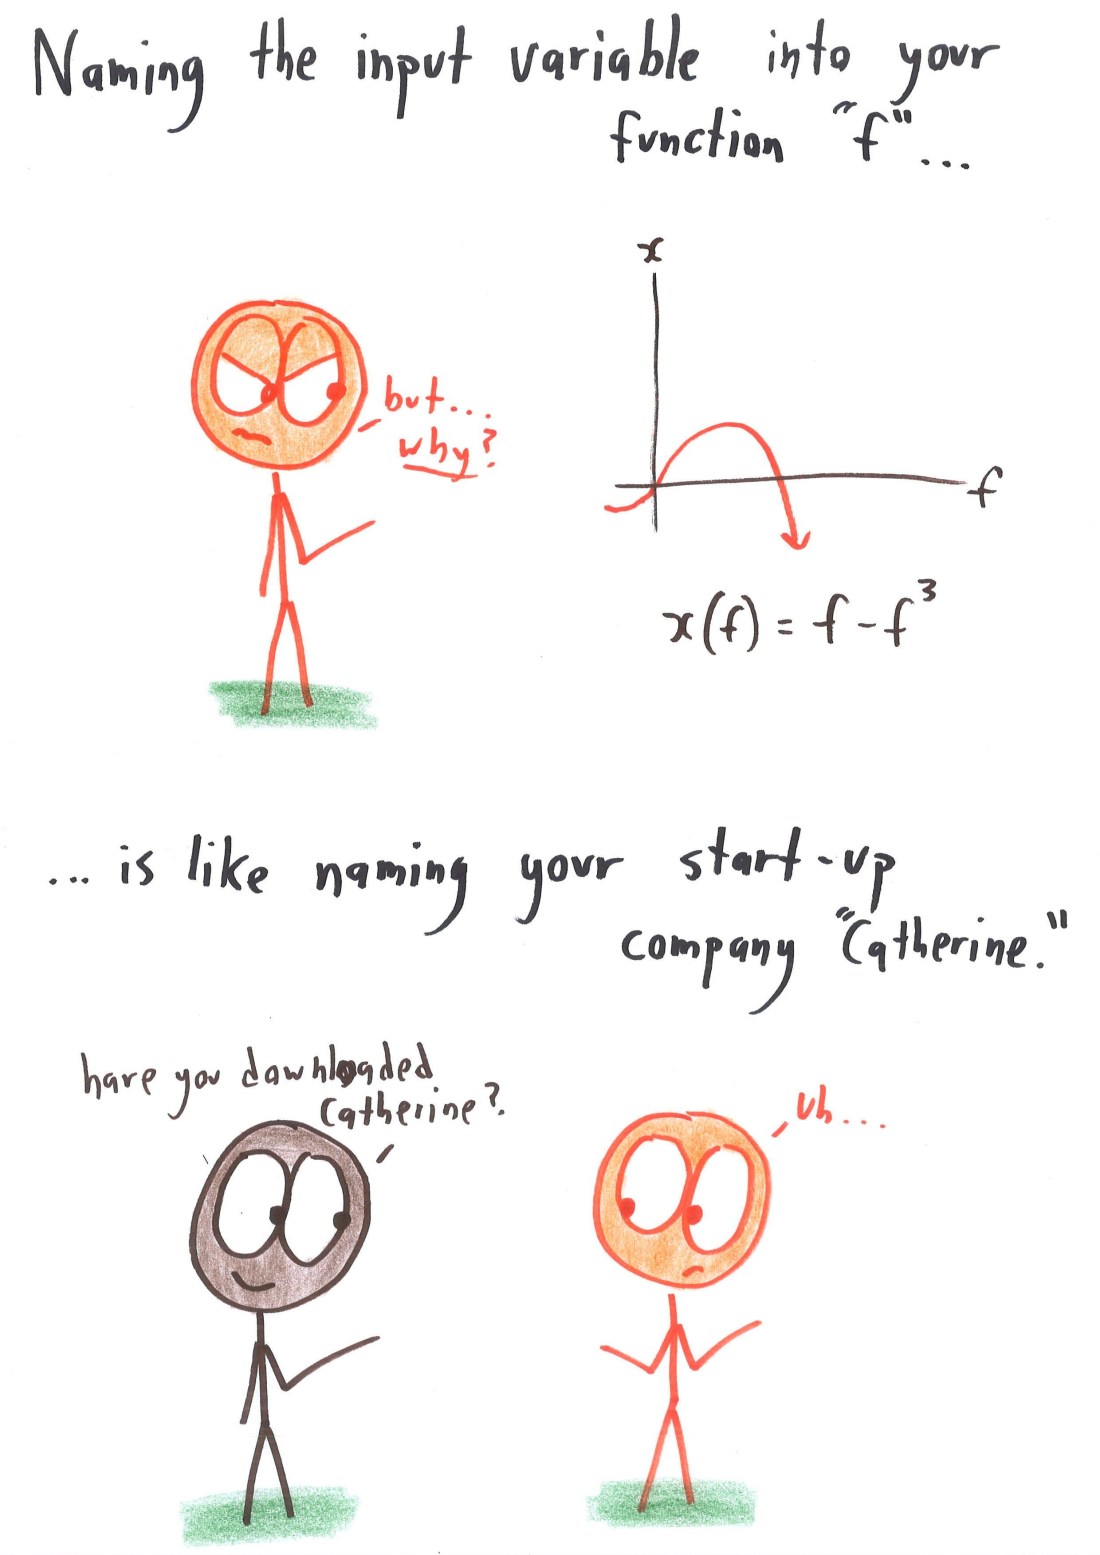 Naming the input variable into your
function "f"...
x
but...
why?
f
x(f) = f - f³
... is like naming your start-up
company "Catherine."
have you downloaded
Catherine?
uh...